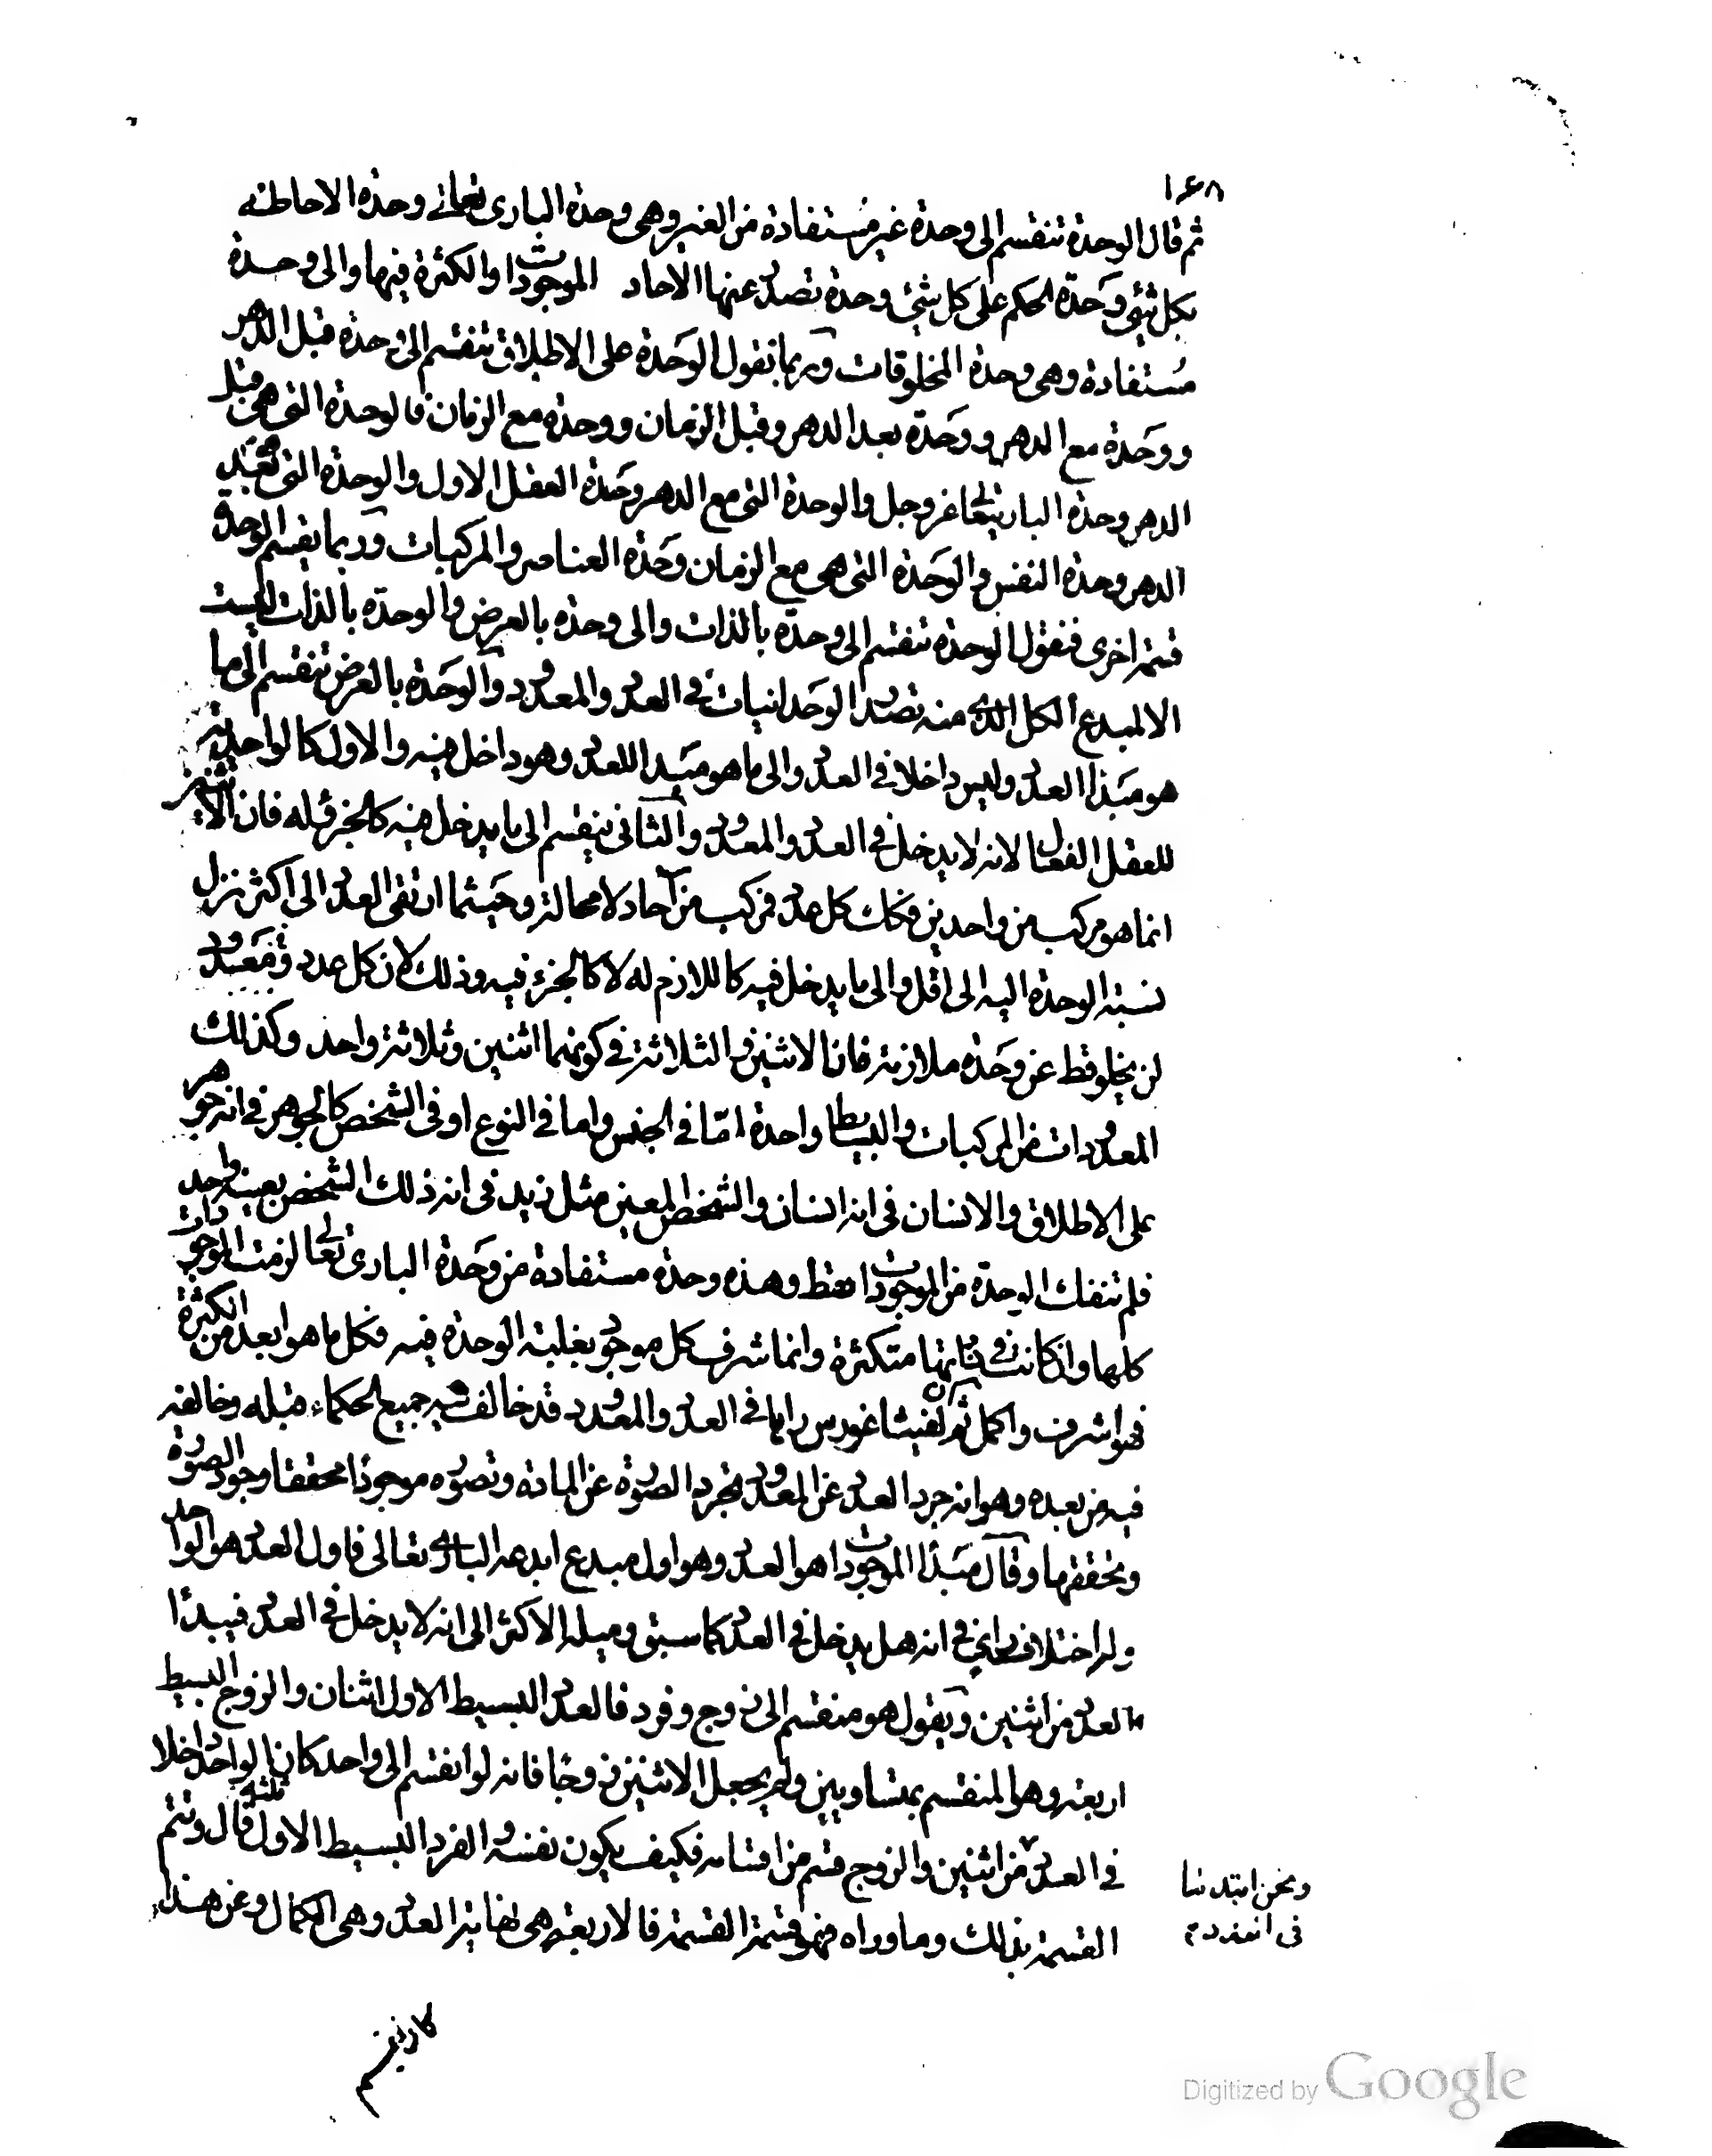 ١٦٨
ثم قال الوحدة تنقسم الى وحدة غير مستفادة من الغير وهى وحدة البارى تعالى وحدة الاحاطة
بكل شئ وحدة الحكم على كل شئ وحدة تصدر عنها الاحاد الموجودات والكثرة فيها والى وحدة
مستفادة وهى وحدة المخلوقات وربما نقول الوحدة على الاطلاق تنقسم الى وحدة قبل الدهر
ووحدة مع الدهر ووحدة بعد الدهر وقبل الزمان ووحدة مع الزمان فالوحدة التى هى قبل
الدهر وحدة البارى تعالى عز وجل والوحدة التى مع الدهر وحدة العقل الاول والوحدة التى هى بعد
الدهر وحدة النفس والوحدة التى هى مع الزمان وحدة العناصر والمركبات وربما يقسم الوحدة
قسمة اخرى فنقول الوحدة تنقسم الى وحدة بالذات والى وحدة بالعرض والوحدة بالذات ليست
الا لمبدع الكل الذى منه تصدر الوحدانيات فى العدد والمعدود والوحدة بالعرض تنقسم الى ما
هو مبدأ العدد وليس داخلا فى العدد والى ما هو مبدأ للعدد وهو داخل فيه والاول كالواحدية
للعقل الفعال لانه لا يدخل فى العدد والمعدود والثانى ينقسم الى ما يدخل فيه كالجزء له فان الاثنين
انما هو مركب من واحدين وكذلك كل عدد فمركب من آحاد لا محالة وحيثما ارتقى العدد الى اكثر نزل
نسبة الوحدة اليه الى اقل والى ما يدخل فيه كاللازم له لا كالجزء فيه وذلك لان كل عدد ومعدود
لن يخلو قط عن وحدة ملازمة فان الاثنين والثلاثة فى كونهما اثنين وثلاثة واحد وكذلك
المعدودات من المركبات والبسائط واحدة امّا فى الجنس واما فى النوع او فى الشخص كالجوهر فى انه جوهر
على الاطلاق والانسان فى انه انسان والشخص المعين مثل زيد فى انه ذلك الشخص بعينه واحد
فلم تنفك الوحدة من الموجودات قط وهذه وحدة مستفادة من وحدة البارى تعالى لزمت الموجودات
كلها وان كانت فى ذاتها متكثرة وانما شرف كل موجود بغلبة الوحدة فيه فكل ما هو ابعد من الكثرة
فهو اشرف واكمل ثم ان لفيثاغورس رايا فى العدد والمعدود قد خالف فيه جميع الحكماء قبله وخالفه
فيه من بعده وهو انه جرد العدد عن المعدود تجريد الصورة عن المادة وتصوره موجودا محققا وجود الصورة
وتحققها وقال مبدأ الموجودات هو العدد وهو اول مبدع ابدعه البارى تعالى فاول العدد هو الواحد
وله اختلاف راى فى انه هل يدخل فى العدد كما سبق وميله الاكثر الى انه لا يدخل فى العدد فيبدأ
العدد من اثنين ويقول هو منقسم الى زوج وفرد فالعدد البسيط الاول اثنان والزوج البسيط
اربعة وهو المنقسم بمتساويين ولم يجعل الاثنين زوجا فانه لو انقسم الى واحد كان الواحد داخلا
فى العدد من اثنين والزوج قسم من اقسامه فكيف يكون نفسه والفرد البسيط الاول ثلثة قال وتتم
القسمة بذلك وما وراه فهو قسمة القسمة فالاربعة هى نهاية العدد وهى الكمال وعن هذا
ونحن ابتدئنا
فى العدد
كان يقسم
Digitized by Google